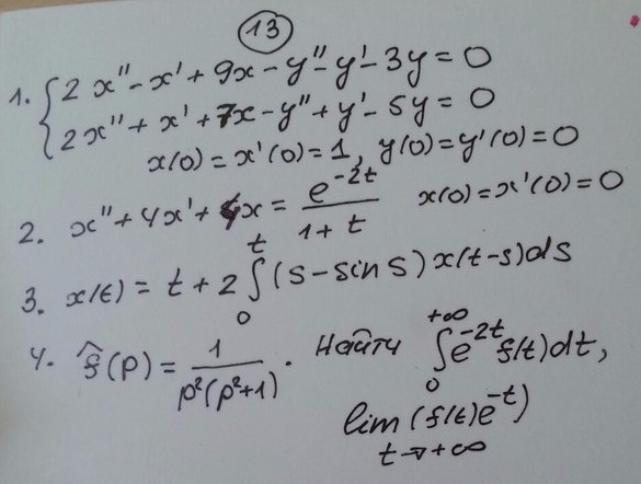 13
1. { 2x'' - x' + 9x - y'' - y' - 3y = 0
2x'' + x' + 7x - y'' + y' - 5y = 0
x(0) = x'(0) = 1, y(0) = y'(0) = 0
2. x'' + 4x' + 4x = e^{-2t} / (1 + t)   x(0) = x'(0) = 0
3. x(t) = t + 2 ∫_0^t (s - sin s) x(t-s) ds
4. f̂(p) = 1 / (p²(p²+1)). Найти ∫_0^{+∞} e^{-2t} f(t) dt,
lim_{t→+∞} (f(t)e^{-t})